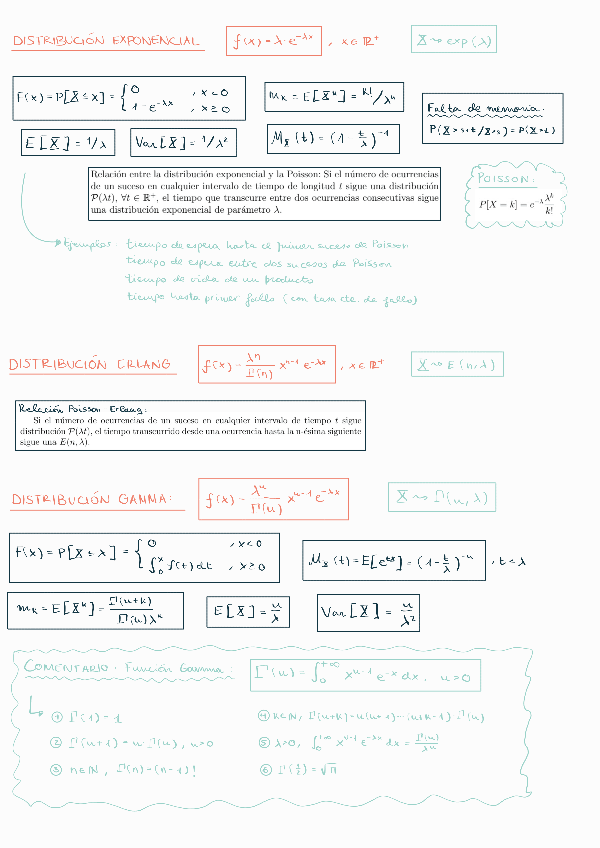 DISTRIBUCIÓN EXPONENCIAL f(x) = λ·e^{-λx} , x ∈ ℝ⁺ X ⇝ exp(λ)
F(x) = P[X ≤ x] = { 0 , x < 0
1 - e^{-λx} , x ≥ 0
m_k = E[X^k] = k!/λ^k
Falta de memoria.
P(X>s+t/X>s) = P(X>t)
E[X] = 1/λ Var[X] = 1/λ² M_X(t) = (1 - t/λ)^{-1}
Relación entre la distribución exponencial y la Poisson: Si el número de ocurrencias
de un suceso en cualquier intervalo de tiempo de longitud t sigue una distribución
P(λt), ∀t ∈ ℝ⁺, el tiempo que transcurre entre dos ocurrencias consecutivas sigue
una distribución exponencial de parámetro λ.
POISSON:
P[X = k] = e^{-λ} λ^k/k!
Ejemplos: tiempo de espera hasta el primer suceso de Poisson
tiempo de espera entre dos sucesos de Poisson
tiempo de vida de un producto
tiempo hasta primer fallo (con tasa cte. de fallo)
DISTRIBUCIÓN ERLANG f(x) = λ^n/Γ(n) x^{n-1} e^{-λx} , x ∈ ℝ⁺ X ⇝ E(n,λ)
Relación Poisson Erlang:
Si el número de ocurrencias de un suceso en cualquier intervalo de tiempo t sigue
distribución P(λt), el tiempo transcurrido desde una ocurrencia hasta la n-ésima siguiente
sigue una E(n, λ).
DISTRIBUCIÓN GAMMA: f(x) = λ^u/Γ(u) x^{u-1} e^{-λx} X ⇝ Γ(u,λ)
F(x) = P[X ≤ x] = { 0 , x < 0
∫_0^x f(t)dt , x ≥ 0
M_X(t) = E[e^{tX}] = (1 - t/λ)^{-u} , t < λ
m_k = E[X^k] = Γ(u+k)/Γ(u)λ^k E[X] = u/λ Var[X] = u/λ²
COMENTARIO. Función Gamma: Γ(u) = ∫_0^{+∞} x^{u-1} e^{-x} dx, u>0
① Γ(1) = 1 ④ k∈ℕ, Γ(u+k) = u(u+1)···(u+k-1) Γ(u)
② Γ(u+1) = u·Γ(u), u>0 ⑤ λ>0, ∫_0^{+∞} x^{u-1} e^{-λx} dx = Γ(u)/λ^u
③ n∈ℕ, Γ(n) = (n-1)! ⑥ Γ(1/2) = √π